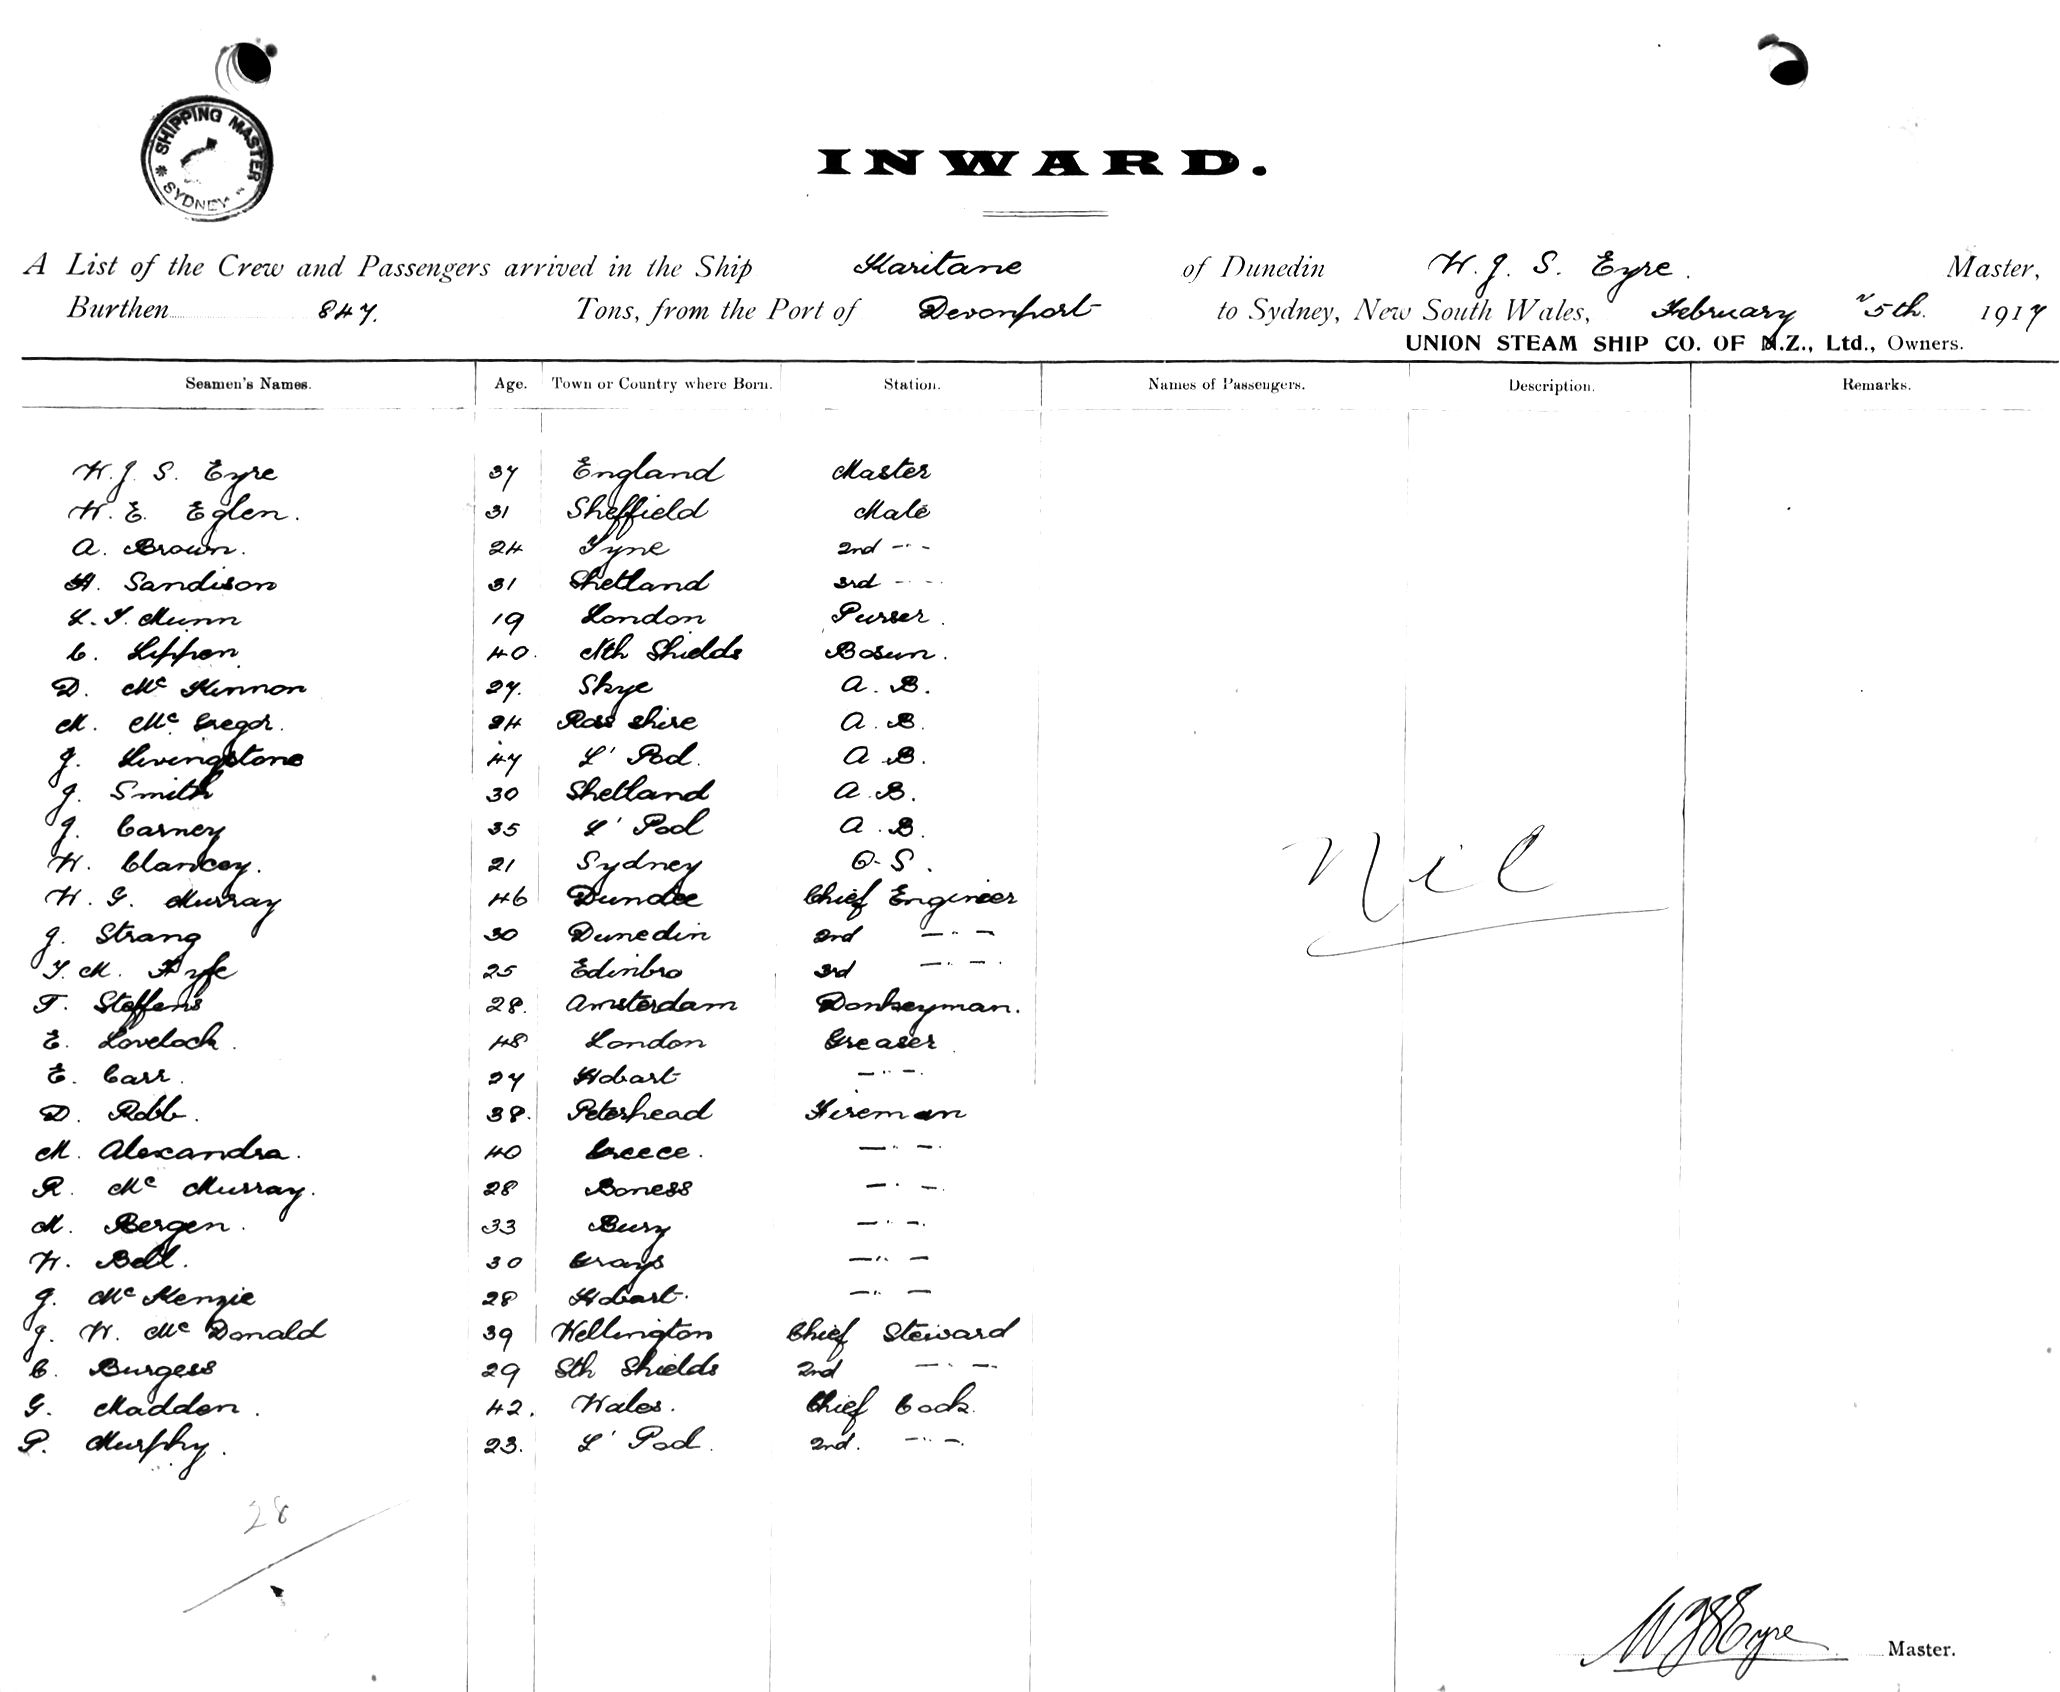 SHIPPING MASTER
* SYDNEY
INWARD.
A List of the Crew and Passengers arrived in the Ship Karitane of Dunedin W. J. S. Eyre. Master,
Burthen 847. Tons, from the Port of Devonport to Sydney, New South Wales, February 5th. 1917
UNION STEAM SHIP CO. OF N.Z., Ltd., Owners.
Seamen's Names. Age. Town or Country where Born. Station. Names of Passengers. Description. Remarks.
W. J. S. Eyre 37 England Master
W. E. Eglen. 31 Sheffield Mate
A. Brown. 24 Tyne 2nd -"-
H. Sandison 31 Shetland 3rd -"-
L. T. Munn 19 London Purser.
C. Lippen 40. Nth Shields Bosun.
D. Mc Kinnon 27. Skye A. B.
M. Mc Gregor. 24 Ross shire A. B.
J. Livingstone 47 L'Pool. A B.
J. Smith 30 Shetland A. B.
J. Carney 35 L'Pool A. B.
W. Clancey. 21 Sydney O. S.
W. G. Murray 46 Dundee Chief Engineer
J. Strang 30 Dunedin 2nd -"-
T. M. Fyfe 25 Edinbro 3rd -"-
T. Steffens 28. Amsterdam Donkeyman.
E. Lovelock. 48 London Greaser
E. Carr. 27 Hobart -"-
D. Robb. 38. Peterhead Fireman
M. Alexandra. 40 Greece. -"-
R. Mc Murray. 28 Boness -"-
M. Bergen. 33 Bury -"-
W. Bell. 30 Grays -"-
J. McKenzie 28 Hobart. -"-
J. W. McDonald 39 Wellington Chief Steward
C. Burgess 29 Sth Shields 2nd -"-
G. Madden. 42. Wales. Chief Cook.
P. Murphy. 23. L'Pool. 2nd. -"-
Nil
28
WJSEyre Master.